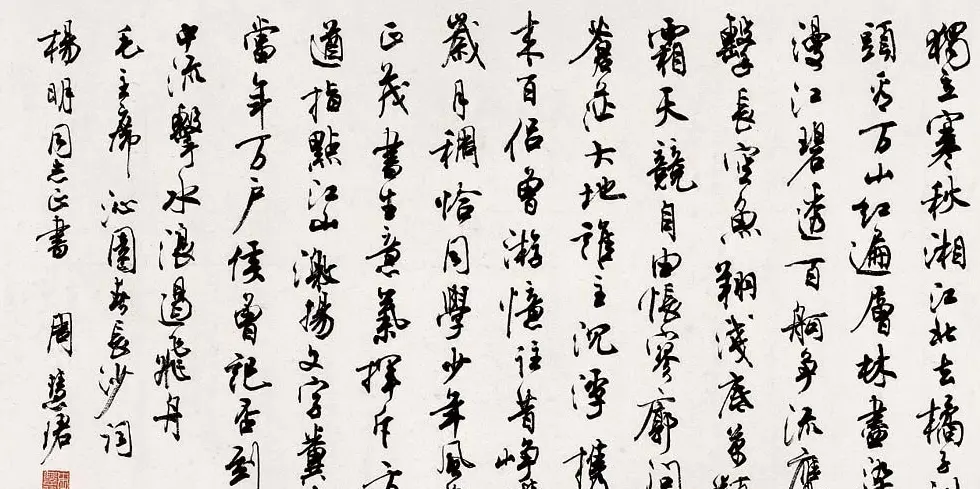 獨立寒秋湘江北去橘子
頭看万山红遍層林盡染
漫江碧透百舸争流鷹
擊長空魚翔淺底萬類
霜天競自由悵寥廓問
蒼茫大地誰主沉浮攜
来百侣曾游憶往昔崢
歲月稠恰同學少年風
正茂書生意氣揮斥方
遒指點江山激揚文字糞
當年万户侯曾記否到
中流擊水浪遏飛舟
毛主席沁園春長沙詞
楊明同志正書 周慧珺